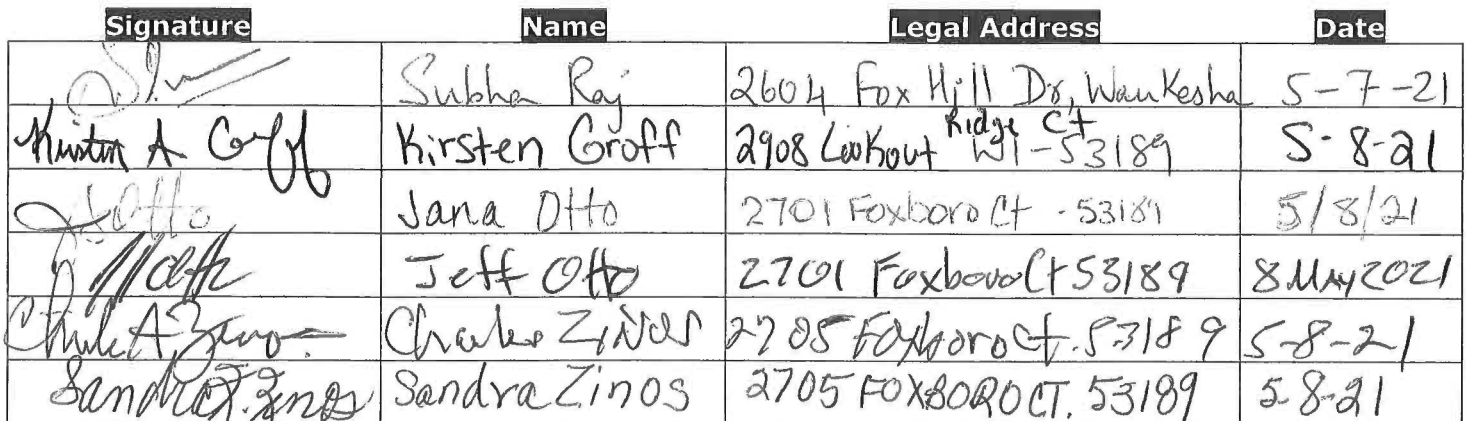 Signature Name Legal Address Date
Subha Raj 2604 Fox Hill Dr, Waukesha 5-7-21
Kirsten A Groff Kirsten Groff 2908 Lookout Ridge Ct WI-53189 5-8-21
J Otto Jana Otto 2701 Foxboro Ct - 53189 5/8/21
Jeff Otto 2701 Foxboro Ct 53189 8 May 2021
Charles A Zinos Charles Zinos 2705 Foxboro Ct. 53189 5-8-21
Sandra J. Zinos Sandra Zinos 2705 FOXBORO CT. 53189 5-8-21